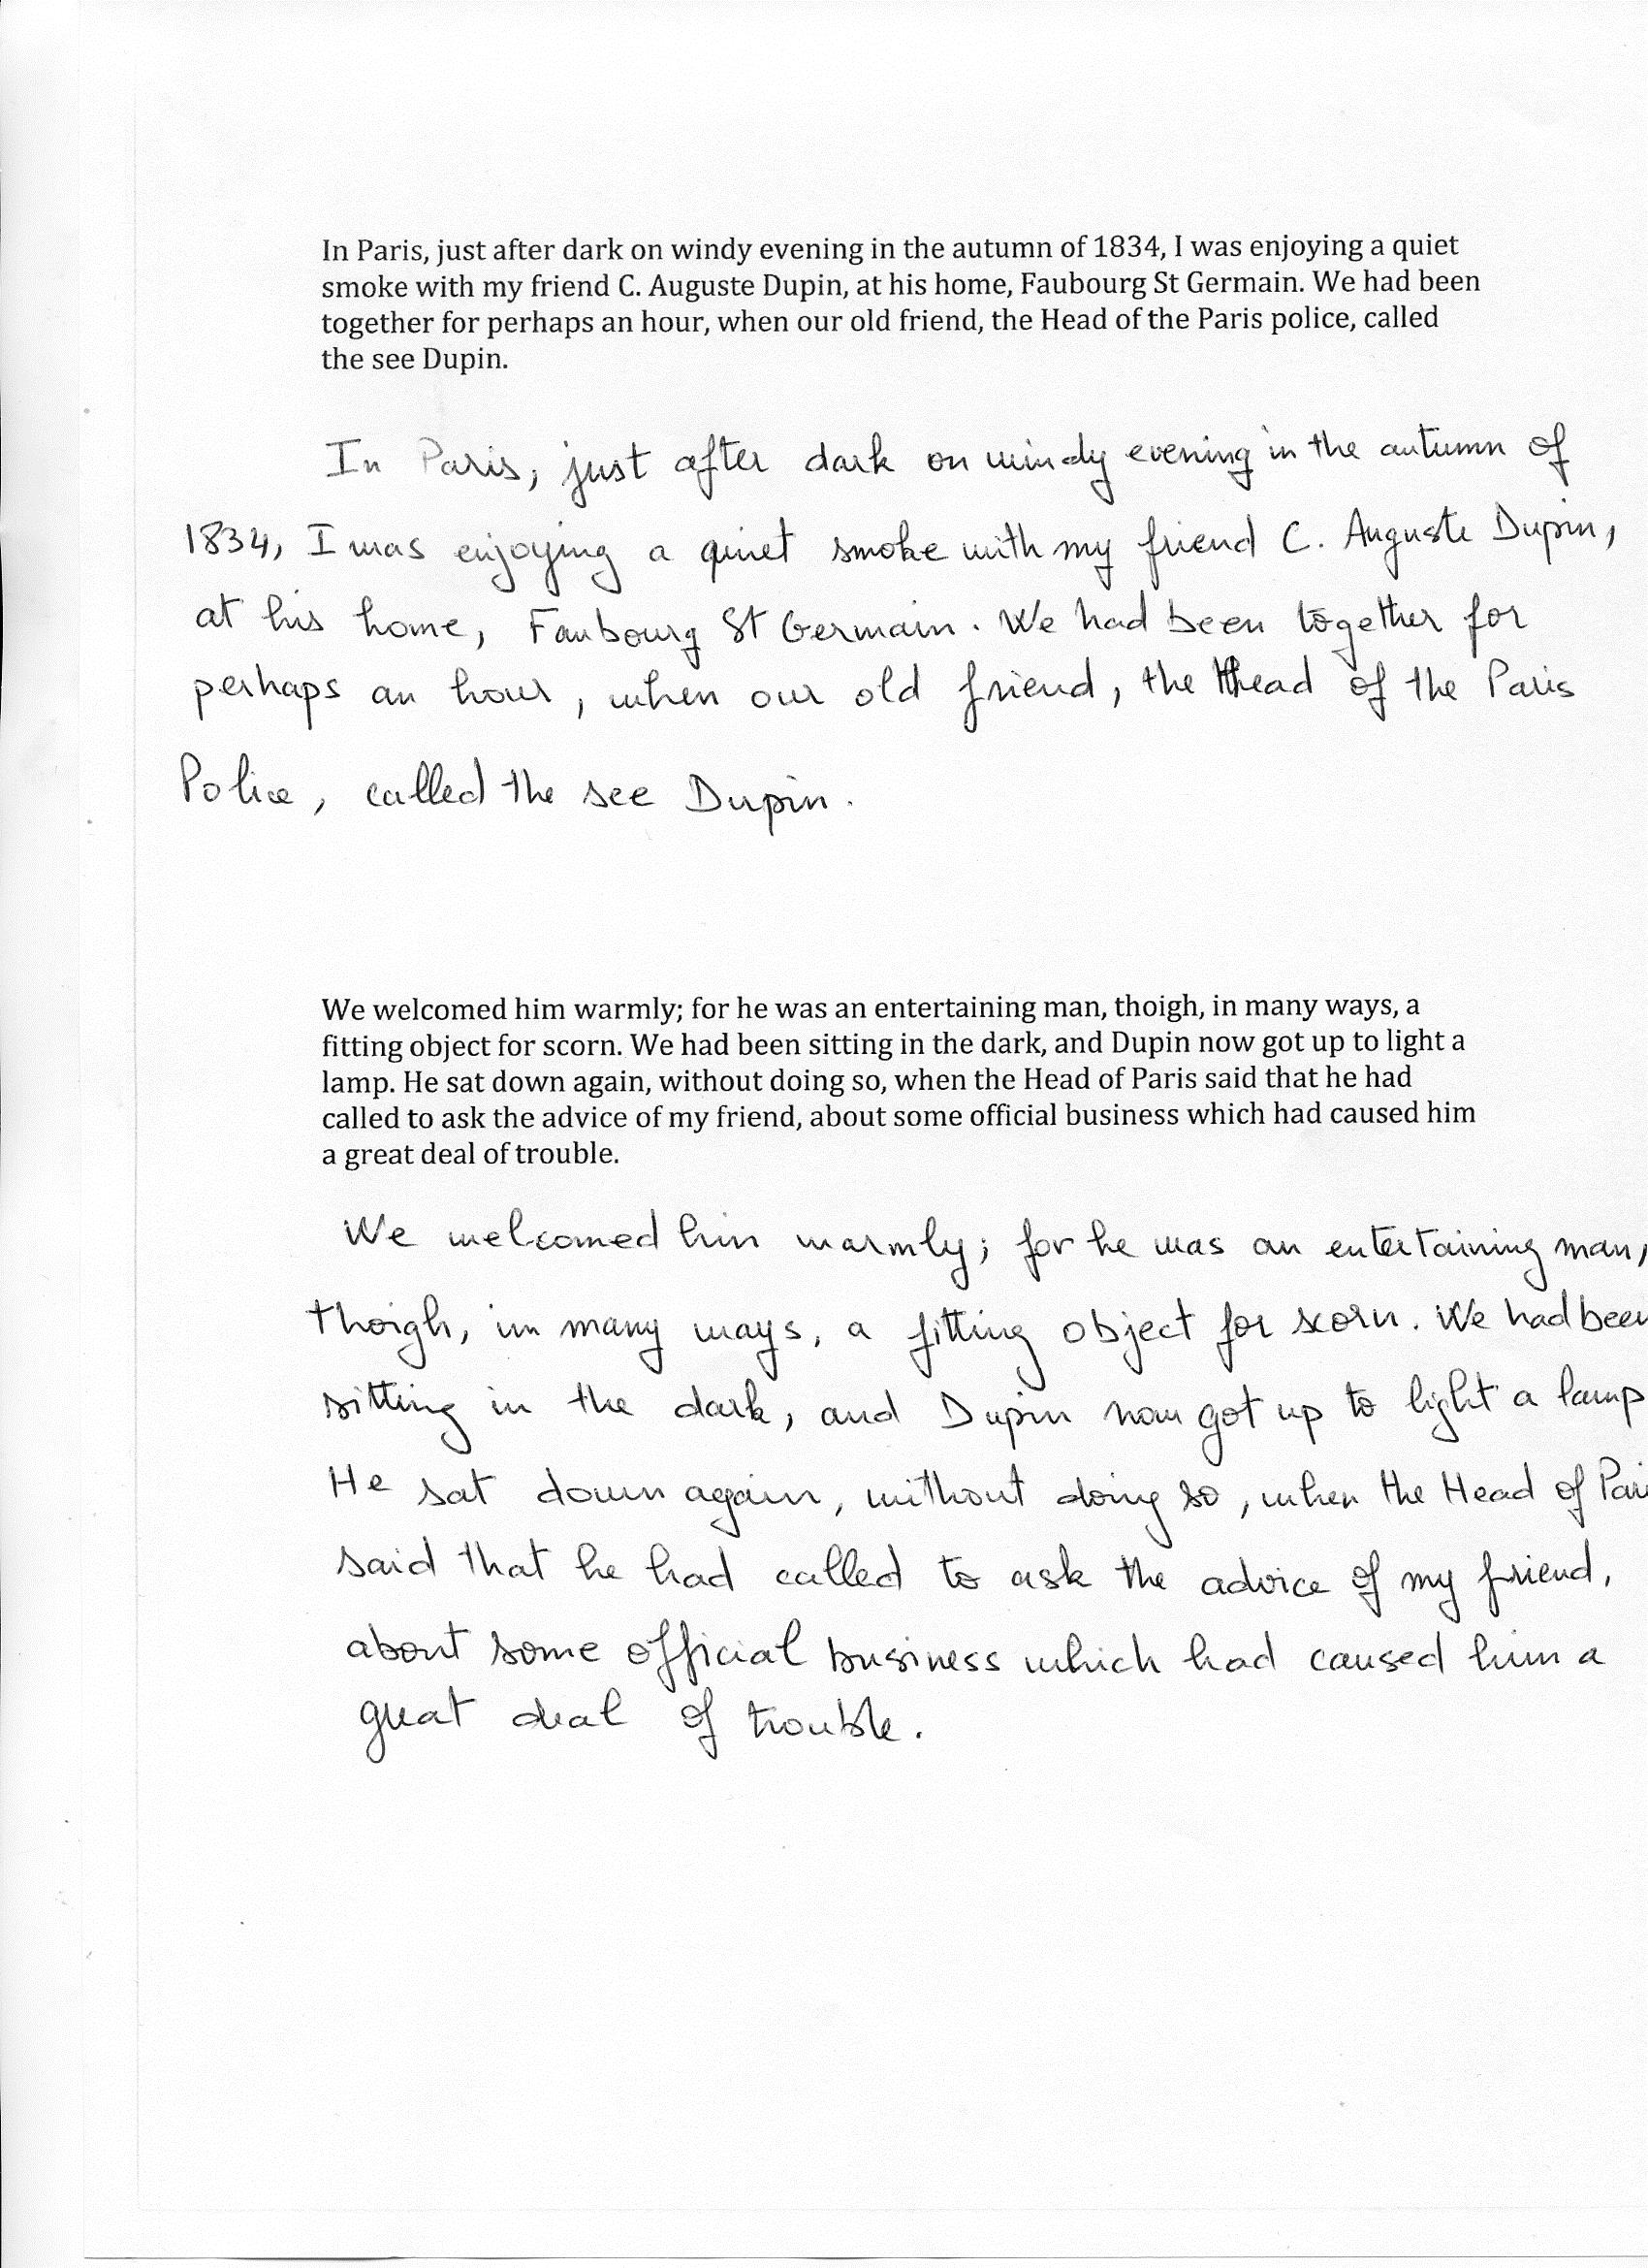 In Paris, just after dark on windy evening in the autumn of 1834, I was enjoying a quiet
smoke with my friend C. Auguste Dupin, at his home, Faubourg St Germain. We had been
together for perhaps an hour, when our old friend, the Head of the Paris police, called
the see Dupin.
In Paris, just after dark on windy evening in the autumn of
1834, I was enjoying a quiet smoke with my friend C. Auguste Dupin,
at his home, Faubourg St Germain. We had been together for
perhaps an hour, when our old friend, the Head of the Paris
Police, called the see Dupin.
We welcomed him warmly; for he was an entertaining man, thoigh, in many ways, a
fitting object for scorn. We had been sitting in the dark, and Dupin now got up to light a
lamp. He sat down again, without doing so, when the Head of Paris said that he had
called to ask the advice of my friend, about some official business which had caused him
a great deal of trouble.
We welcomed him warmly; for he was an entertaining man,
thoigh, in many ways, a fitting object for scorn. We had been
sitting in the dark, and Dupin now got up to light a lamp
He sat down again, without doing so, when the Head of Pari
said that he had called to ask the advice of my friend,
about some official business which had caused him a
great deal of trouble.